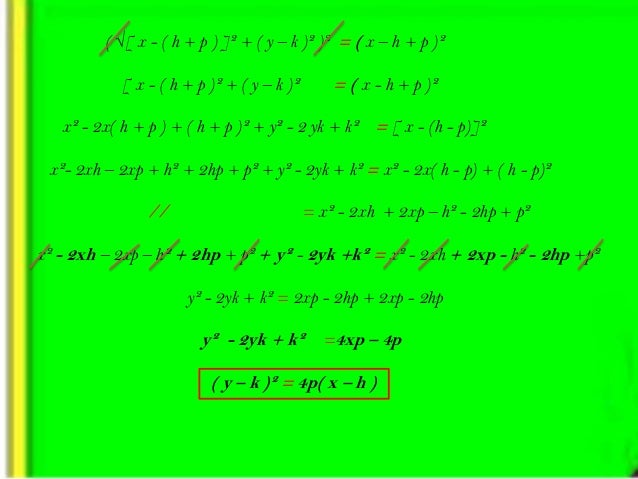 (√[ x - ( h + p ) ]² + ( y – k )² )² = ( x – h + p )²
[ x - ( h + p )² + ( y – k )² = ( x - h + p )²
x² - 2x( h + p ) + ( h + p )² + y² - 2 yk + k² = [ x - (h - p)]²
x²- 2xh – 2xp + h² + 2hp + p² + y² - 2yk + k² = x² - 2x( h - p) + ( h - p)²
// = x² - 2xh + 2xp – h² - 2hp + p²
x² - 2xh – 2xp – h² + 2hp + p² + y² - 2yk +k² = x² - 2xh + 2xp - h² - 2hp +p²
y² - 2yk + k² = 2xp - 2hp + 2xp - 2hp
y² - 2yk + k² =4xp – 4p
( y – k )² = 4p( x – h )